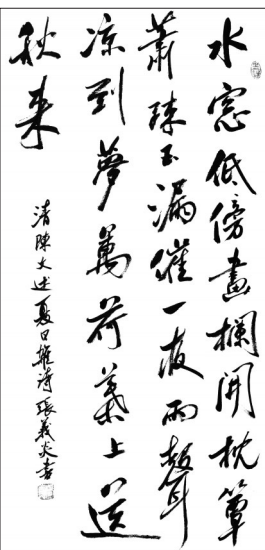 水窓低傍畫欄開枕簟
蕭疎玉漏催一夜雨聲
涼到夢萬荷葉上送
秋来
清陳文述夏日雜詩張義炎書